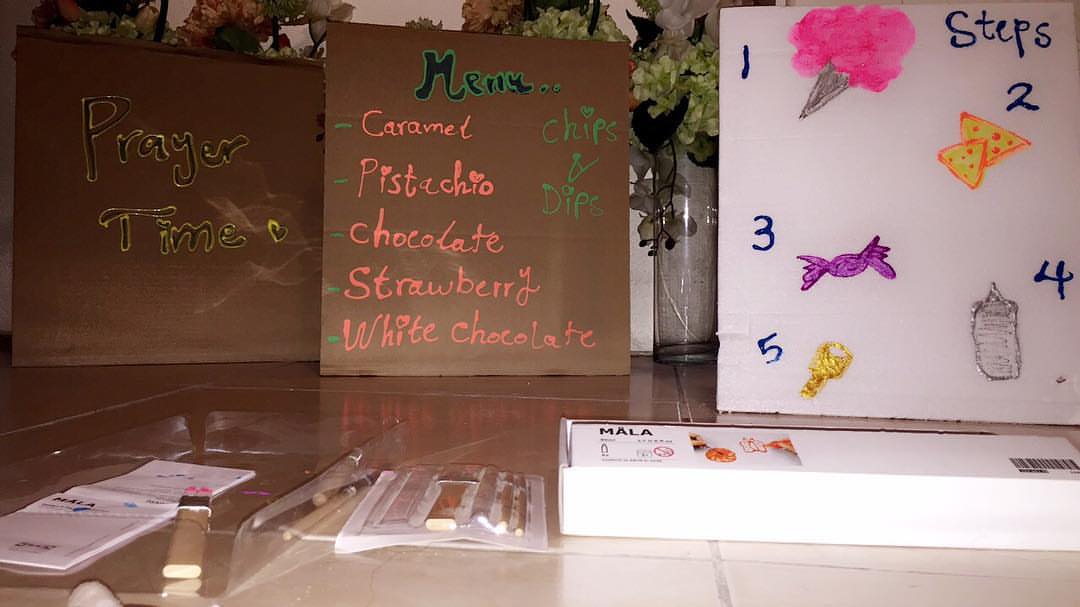 Prayer
Time
Menu..
- Caramel
- Pistachio
- Chocolate
- Strawberry
- White chocolate
chips
&
Dips
Steps
1
2
3
4
5
MÅLA
MÅLA